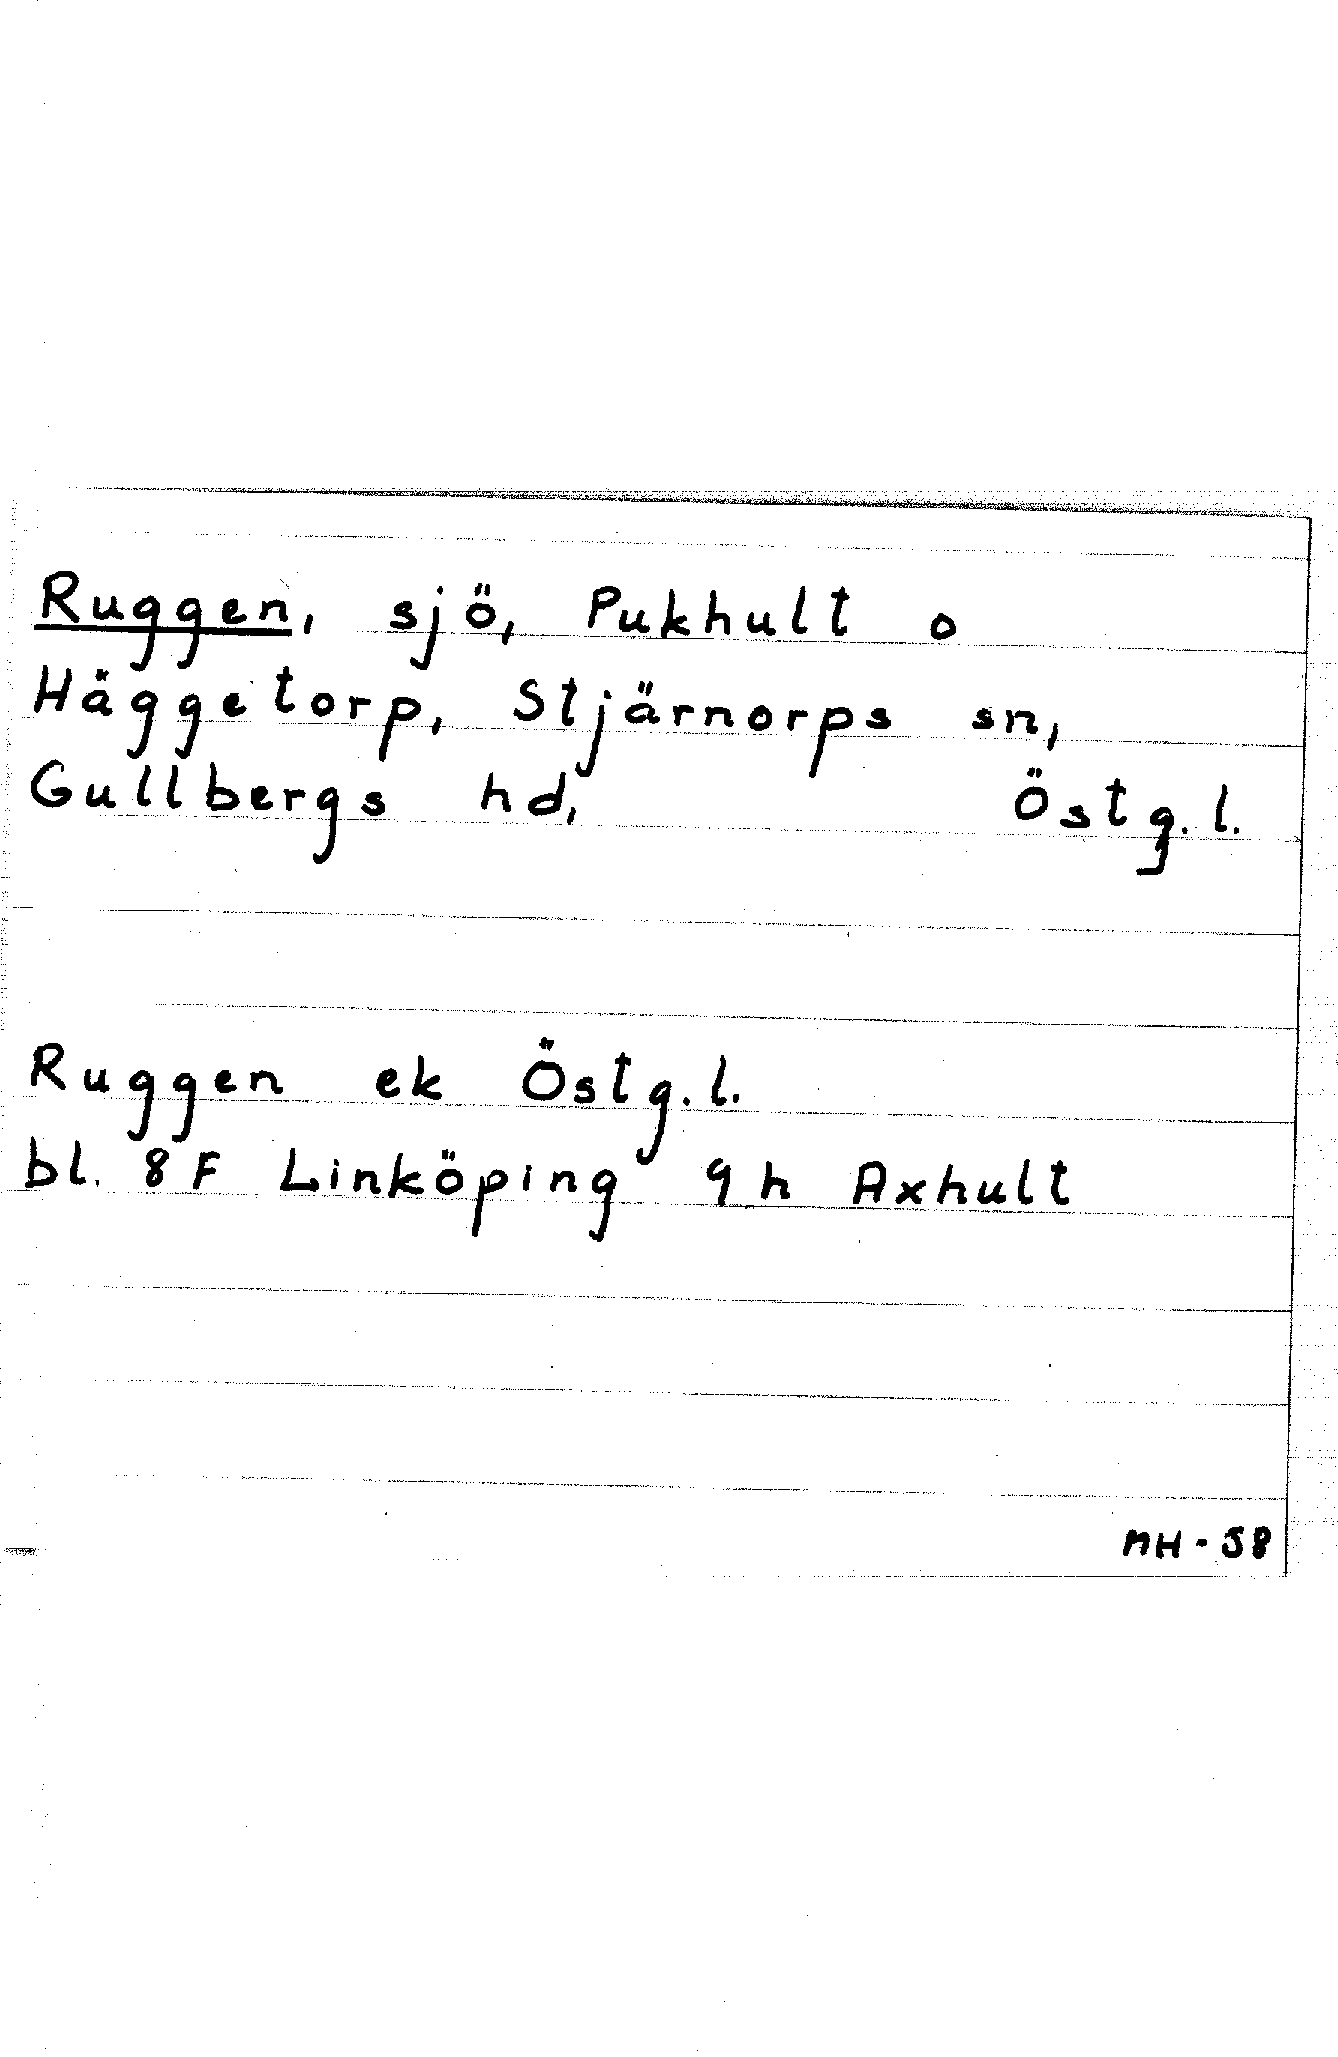 Ruggen, sjö, Pukhult o
Häggetorp, Stjärnorps sn,
Gullbergs hd, Östg.l.
Ruggen ek Östg.l.
bl. 8F Linköping 9h Axhult
MH-58